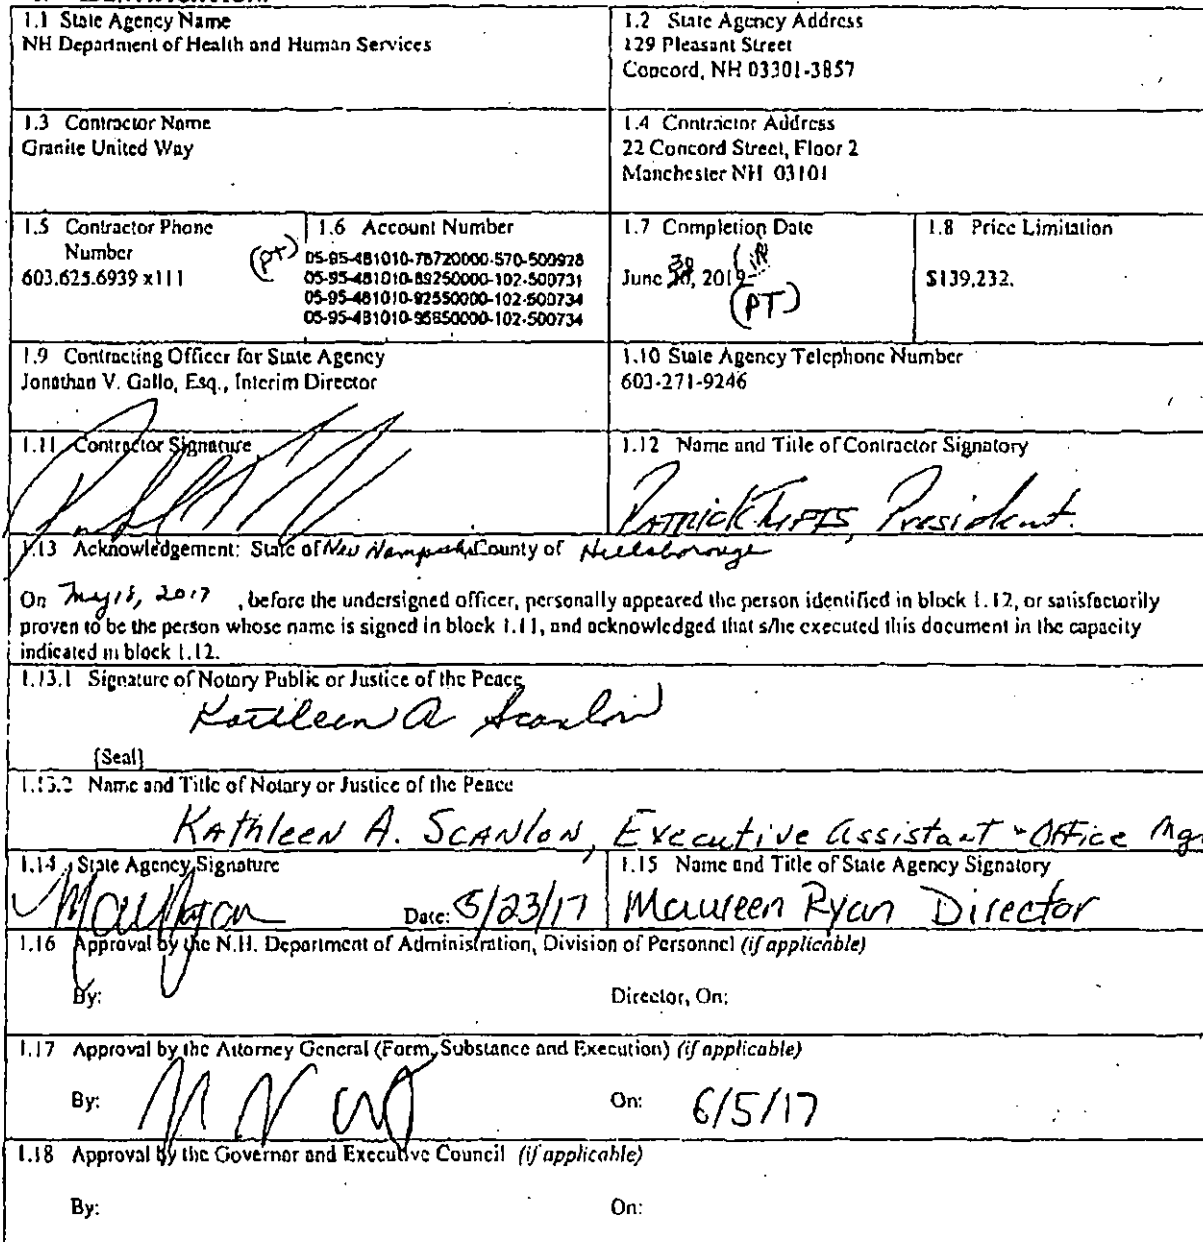 1.1 State Agency Name
NH Department of Health and Human Services
1.2 State Agency Address
129 Pleasant Street
Concord, NH 03301-3857
1.3 Contractor Name
Granite United Way
1.4 Contractor Address
22 Concord Street, Floor 2
Manchester NH 03101
1.5 Contractor Phone
Number
603.625.6939 x111
1.6 Account Number
(PT)
05-95-481010-78720000-570-500928
05-95-481010-89250000-102-500731
05-95-481010-92550000-102-500734
05-95-481010-95650000-102-500734
1.7 Completion Date
June 30, 2019
(PT)
1.8 Price Limitation
$139,232.
1.9 Contracting Officer for State Agency
Jonathan V. Gallo, Esq., Interim Director
1.10 State Agency Telephone Number
603-271-9246
1.11 Contractor Signature
1.12 Name and Title of Contractor Signatory
PATRICK TUFTS, President.
1.13 Acknowledgement: State of New Hampshire County of Hillsborough
On May 18, 2017 , before the undersigned officer, personally appeared the person identified in block 1.12, or satisfactorily
proven to be the person whose name is signed in block 1.11, and acknowledged that s/he executed this document in the capacity
indicated in block 1.12.
1.13.1 Signature of Notary Public or Justice of the Peace
Kathleen A Scanlon
[Seal]
1.13.2 Name and Title of Notary or Justice of the Peace
KAthleeN A. SCANloN, Executive Assistant - Office Mgr
1.14 State Agency Signature
Date: 5/23/17
1.15 Name and Title of State Agency Signatory
Maureen Ryan Director
1.16 Approval by the N.H. Department of Administration, Division of Personnel (if applicable)
By: Director, On:
1.17 Approval by the Attorney General (Form, Substance and Execution) (if applicable)
By: On: 6/5/17
1.18 Approval by the Governor and Executive Council (if applicable)
By: On: